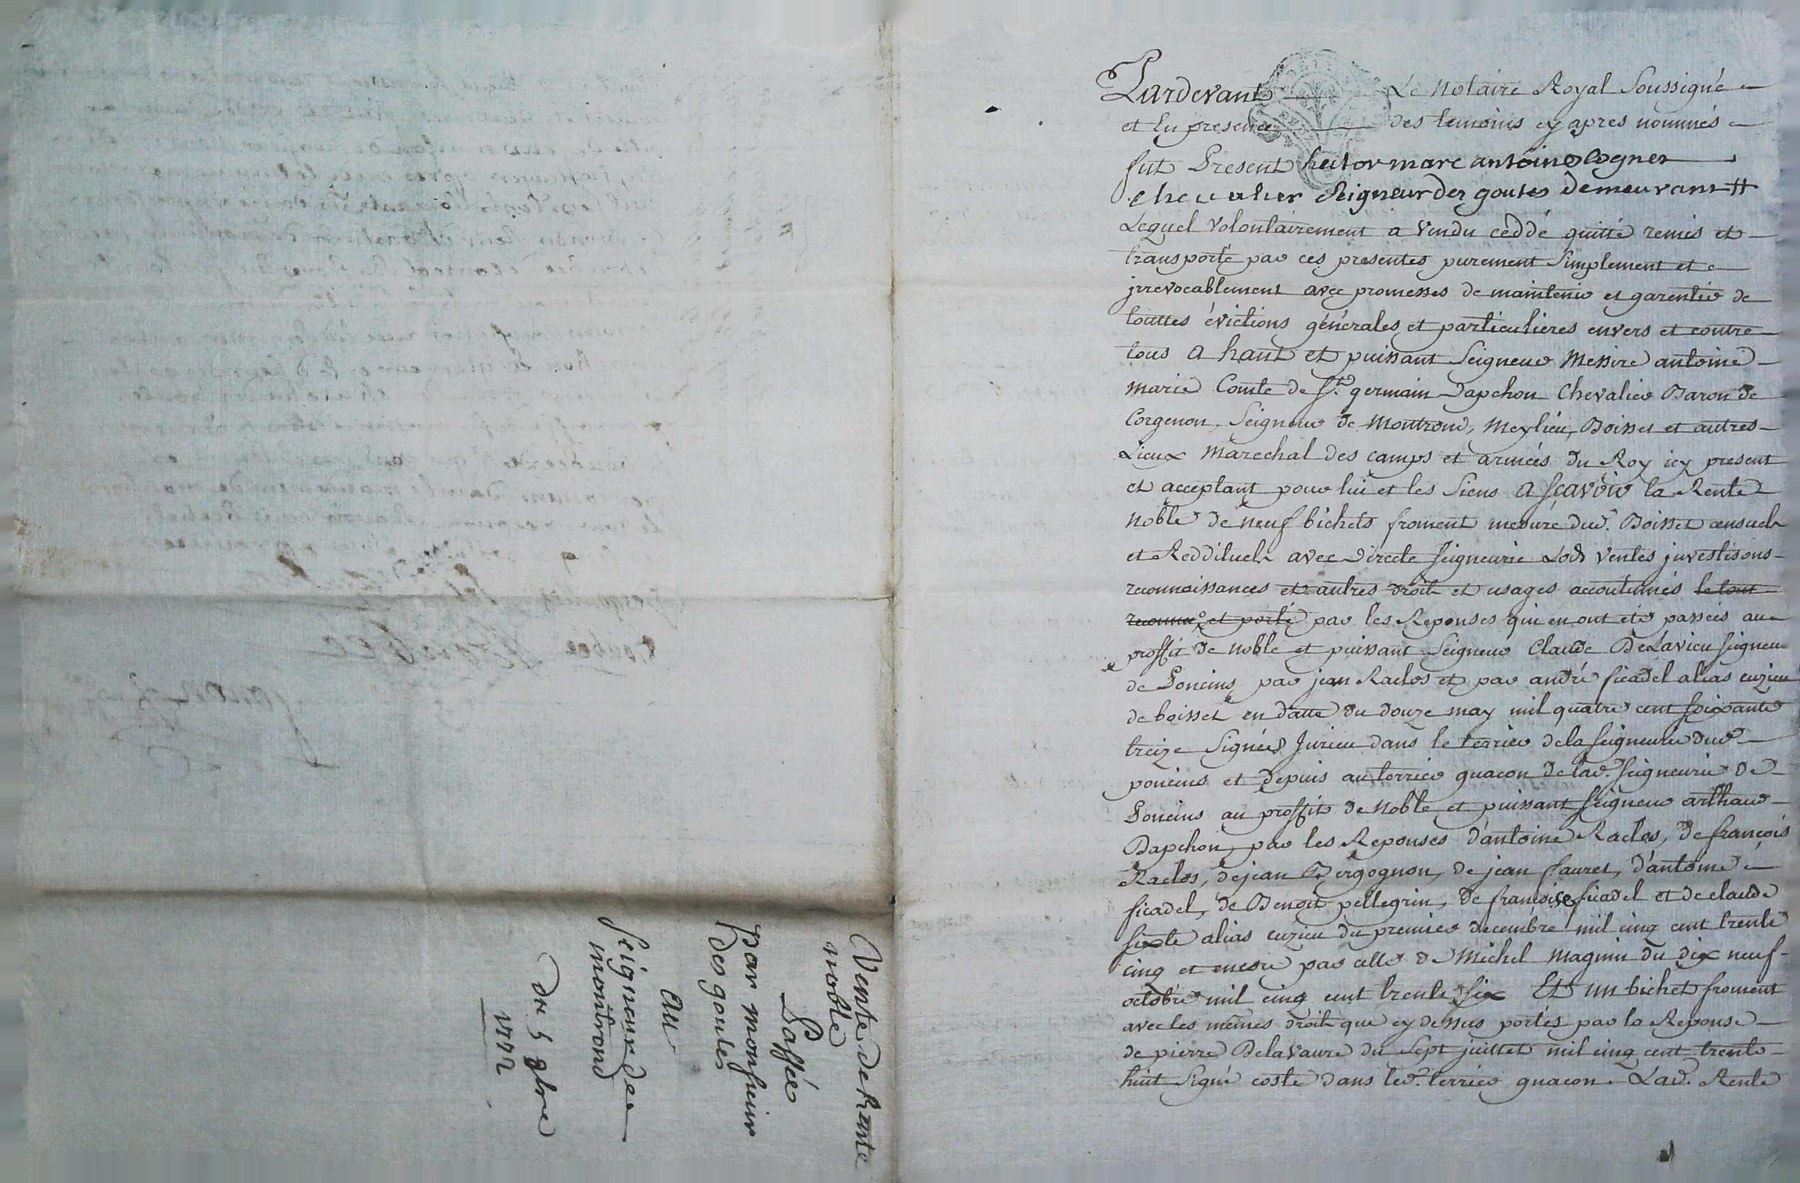 Pardevant Le Notaire Royal Soussigné
et En presence des temoins cy apres nommés
fut Present hector marc antoine Cogner
chevalier Seigneur des goutes Demeurant #
Lequel volontairement a vendu ceddé quitté remis et
transporté par ces presentes purement simplement et
jrrevocablement avec promesses de maintenir et garentir de
touttes évictions générales et particulieres envers et contre
tous a haut et puissant Seigneur Messire antoine
marie Comte de St. germain Dapchon Chevalier Baron de
Corgenon, Seigneur de Montrond, Meylieu, Boisset et autres
Lieux Maréchal des camps et armées du Roy icy present
et acceptant pour lui et les siens a scavoir la Rente
noble de neuf bichets froment mesure dud. Boisset censuels
et Reddituels avec Directe seigneurie Lods ventes jnvestisons
reconnoissances et autres droits et usages accoutumés le tout
reconnu et porté par les Reponses qui en ont été passées au
proffit de noble et puissant Seigneur Claude De Lavieu seigneur
de Poncins par jean Raclos et par andré ficadel alias euzieu
de boisset en datte du douze may mil quatre cent soixante
treize Signées Jurieu dans le terrier de la seigneurie dud.
poncins et depuis au terrier quacon de lad. seigneurie de
Poncins au proffit de Noble et puissant seigneur arthaud
Dapchon par les Reponses d'antoine Raclos, de françois
Raclos, de jean Bergognon, de jean faures, d'antoine
ficadel, de Benoit pellegrin, de françoise ficadel et de claude
sixte alias euzieu du premier decembre mil cinq cent trente
cinq et encore par celle de Michel magnin du dix neuf
octobre mil cinq cent trente six Et un bichet froment
avec les mêmes droits que cy dessus portés par la Reponse
de pierre Delavaure du sept juillet mil cinq cent trente
huit Signé coste dans led. terrier quacon. Lad. Rente
Vente de Rente
noble
Passée
par monsieur
des goutes
au
seigneur de
montrond
du 5 9bre
1772